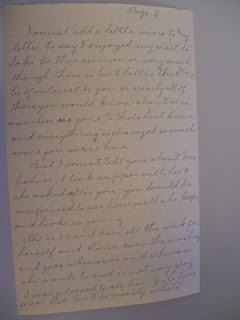 Page 3
I must add a little more to my
letter to say I enjoyed my visit to
Lake Co this summer very much
though there is but little that
be of interest to you as nearly all of
those you would know about or re
member are gone to their last home
and everything is changed so much
since you were here
But I must tell you about Mrs
I took supper with her &
she asked after you; you would be
surprised to see how well she keeps
and looks so young
She is and does all the work for
herself and alone even the washing
and goes whenever and wherever
she wants to and is not very gray
I was pleased to see her
dear but he nearly